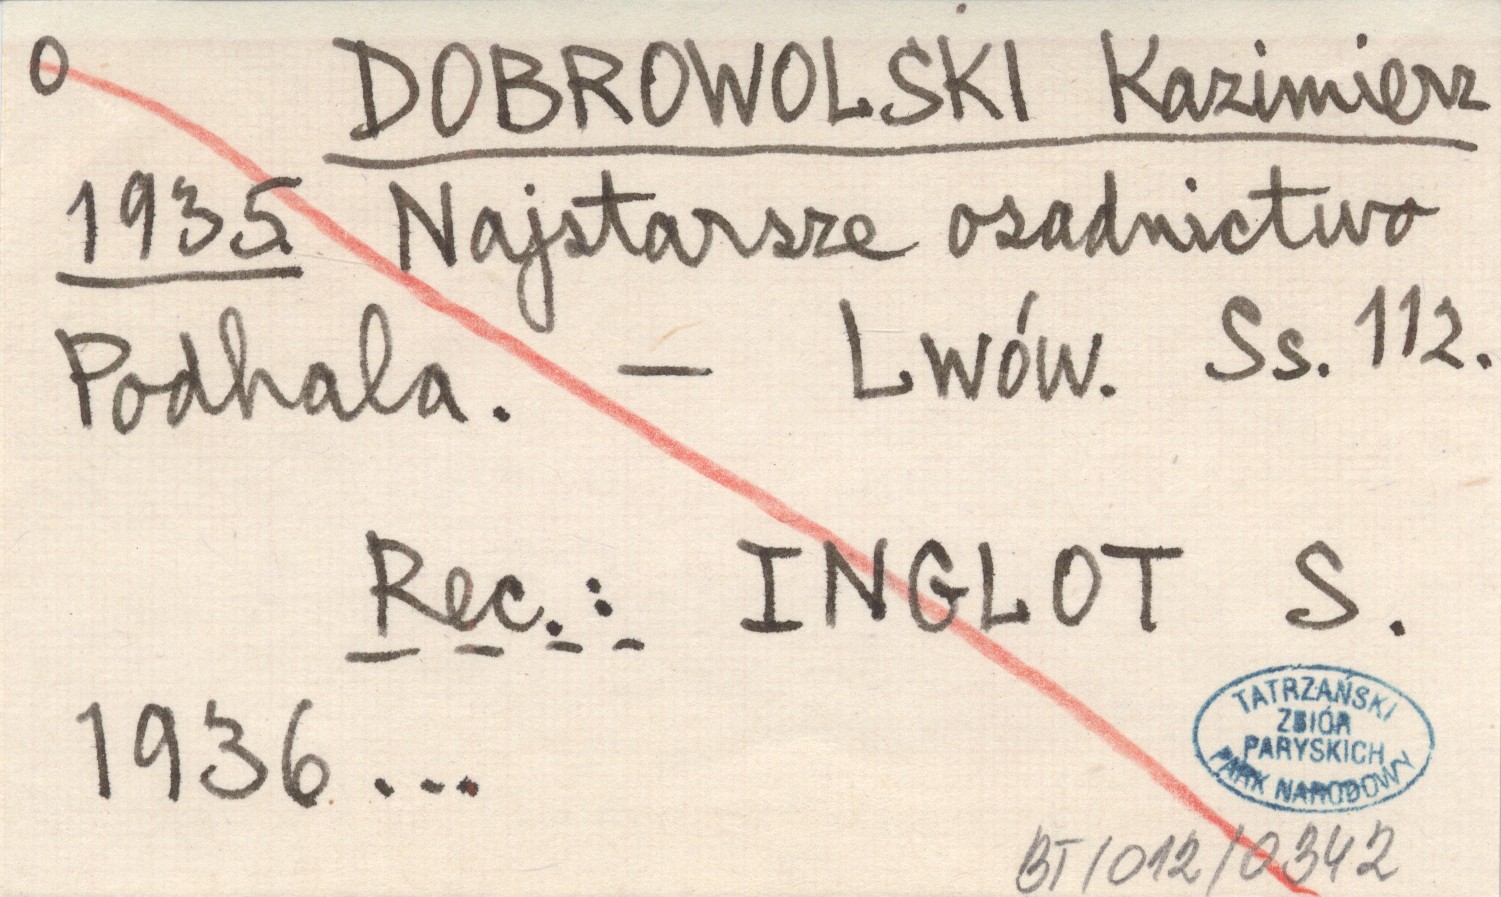 O DOBROWOLSKI Kazimierz
1935 Najstarsze osadnictwo
Podhala. — Lwów. Ss. 112.
Rec.: INGLOT S.
1936...
TATRZAŃSKI
ZBIÓR
PARYSKICH
PARK NARODOWY
BT/012/0342